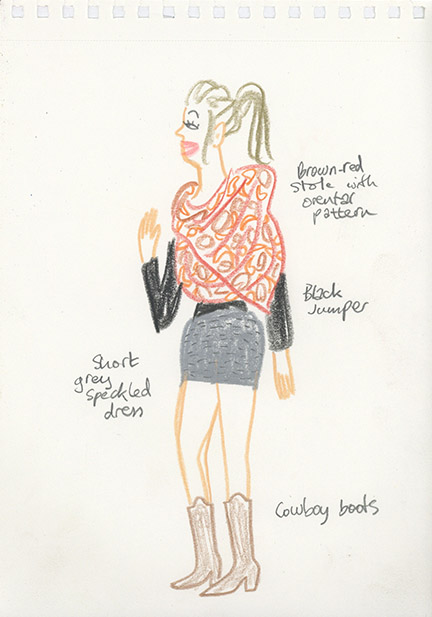 Brown-red
stole with
orental
pattern
Black
Jumper
Short
grey
speckled
dress
Cowboy boots